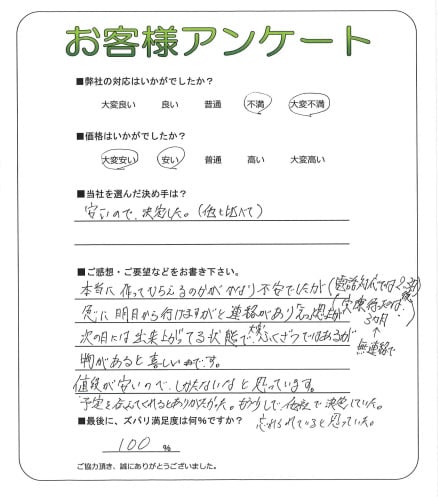 お客様アンケート
■弊社の対応はいかがでしたか?
大変良い 良い 普通 不満 大変不満
■価格はいかがでしたか?
大変安い 安い 普通 高い 大変高い
■当社を選んだ決め手は?
安いので、決定した。(他と比べて)
■ご感想・ご要望などをお書き下さい。
本当に作ってもらえるのかがかなり不安でしたが(電話対応では
急に明日から行けますがと連絡があり
3ヶ月
次の日には出来上がってる状態で、ふくざつではあるが
無連絡で
物があると喜しいものです。
値段が安いので、しかたないなと思っています。
予定を
くれるとありがたかった。もう少しで他社で決定していた。
忘れられていると思っていた。
■最後に、ズバリ満足度は何%ですか?
100 %
ご協力頂き、誠にありがとうございました。